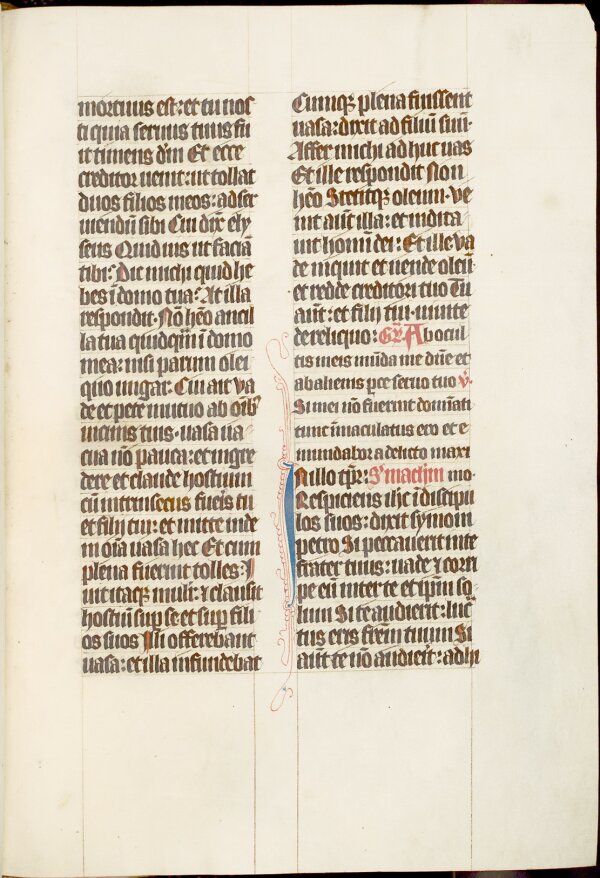 mortuus est: et tu nos
ti quia seruus tuus fu
it timens dn̄m Et ecce
creditor uenit: ut tollat
duos filios meos: ad ser
uiendū sibi Cui dix̄ ely
seus Quid uis ut faciā
tibi: Dic michi quid ha
bes ī domo tua: At illa
respondit· Nō hēo ancil
la tua quidq̄m ī domo
mea: nisi parum olei
quo ungar· Cui ait va
de et pete mutuo ab oīb
uicinis tuis· uasa ua
cua nō pauca: et ingre
dere et claude hostium
cū intrinsecus fueris tu
et filij tui: et mitte inde
in oīa uasa hec Et cum
plena fuerint tolles: J
uit itaq̄ꝫ mulr̄: ⁊ clausit
hostiū sup̄ se et sup̄ fili
os suos Jlli offerebant
uasa: et illa infundebat
Cumqꝫ plena fuissent
uasa: dixit ad filiū suū·
Affer michi adhuc uas
Et ille respondit Non
hēo Stetitqꝫ oleum· Ve
nit aūt illa: et indica
uit homī dei: Et ille va
de inquit et uende oleū
et redde creditori tuo Tu
aūt: et filij tui· uiuite
de reliquo: Gr̄ Ab ocul
tis meis mūda me dn̄e et
ab alienis p̄ce seruo tuo v̄·
Si mei nō fuerint domīati
tunc īmaculatus ero et e
mundabor a delicto maxī
Jn illo tp̄r: S' mathm
Respiciens ihc̄ ī discipu
los suos: dixit symoni
petro Si peccauerit in te
frater tuus: uade ⁊ corri
pe eū inter te et ip̄m so
lum Si te audierit: luc̄
tus eris fr̄em tuum Si
aūt te nō audierit: adhi